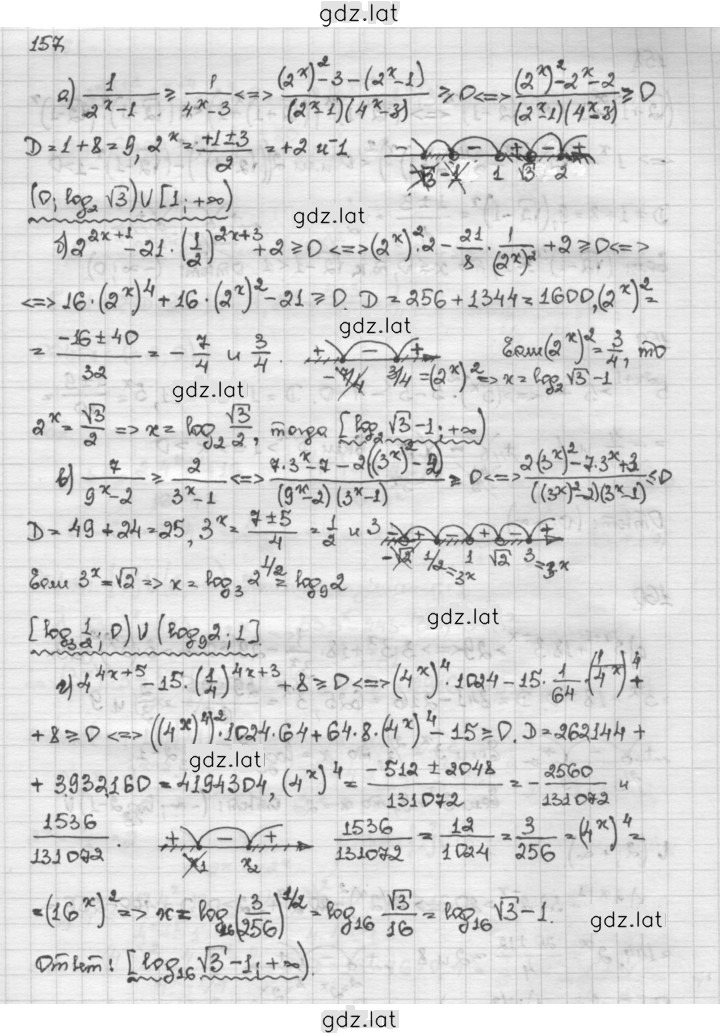 gdz.lat
157.
а) 1/(2^x-1) ≥ 1/(4^x-3) <=> ((2^x)^2-3-(2^x-1))/((2^x-1)(4^x-3)) ≥ 0 <=> ((2^x)^2-2^x-2)/((2^x-1)(4^x-3)) ≥ 0
D=1+8=9, 2^x = (+1±3)/2 = +2 и -1. - + - + - + -√3 -1 1 √3 2
(0; log_2 √3) ∪ [1; +∞)
gdz.lat
б) 2^(2x+1) - 21·(1/2)^(2x+3) + 2 ≥ 0 <=> (2^x)^2·2 - 21/8 · 1/(2^x)^2 + 2 ≥ 0 <=>
<=> 16·(2^x)^4 + 16·(2^x)^2 - 21 ≥ 0. D = 256+1344=1600, (2^x)^2 =
gdz.lat
= (-16±40)/32 = -7/4 и 3/4. + - + -7/4 3/4 =(2^x)^2 Если (2^x)^2 = 3/4, то
=> x = log_2 √3 - 1
gdz.lat
2^x = √3/2 => x = log_2 √3/2, тогда [log_2 √3 - 1; +∞)
в) 7/(9^x-2) ≥ 2/(3^x-1) <=> (7·3^x-7-2((3^x)^2-2))/((9^x-2)(3^x-1)) ≥ 0 <=> (2(3^x)^2-7·3^x+3)/(((3^x)^2-2)(3^x-1)) ≤ 0
D = 49+24=25, 3^x = (7±5)/4 = 1/2 и 3 + - + - + -√2 1/2 1 √2 3
=3^x =3^x
Если 3^x = √2 => x = log_3 2^(1/2) = log_9 2
gdz.lat
[log_3 1/2; 0) ∪ (log_9 2; 1]
г) 4^(4x+5) - 15·(1/4)^(4x+3) + 8 ≥ 0 <=> (4^x)^4·1024 - 15·1/64·(1/4^x)^4 +
+8 ≥ 0 <=> ((4^x)^4)^2·1024·64+64·8·(4^x)^4 - 15 ≥ 0. D=262144+
gdz.lat
+ 3932160 = 4194304, (4^x)^4 = (-512±2048)/131072 = -2560/131072 и
1536/131072. + - + x_1 x_2 1536/131072 = 12/1024 = 3/256 = (4^x)^4 =
=(16^x)^2 => x = log_16 (3/256)^(1/2) = log_16 √3/16 = log_16 √3 - 1.
gdz.lat
Ответ: [log_16 √3 - 1; +∞).
gdz.lat